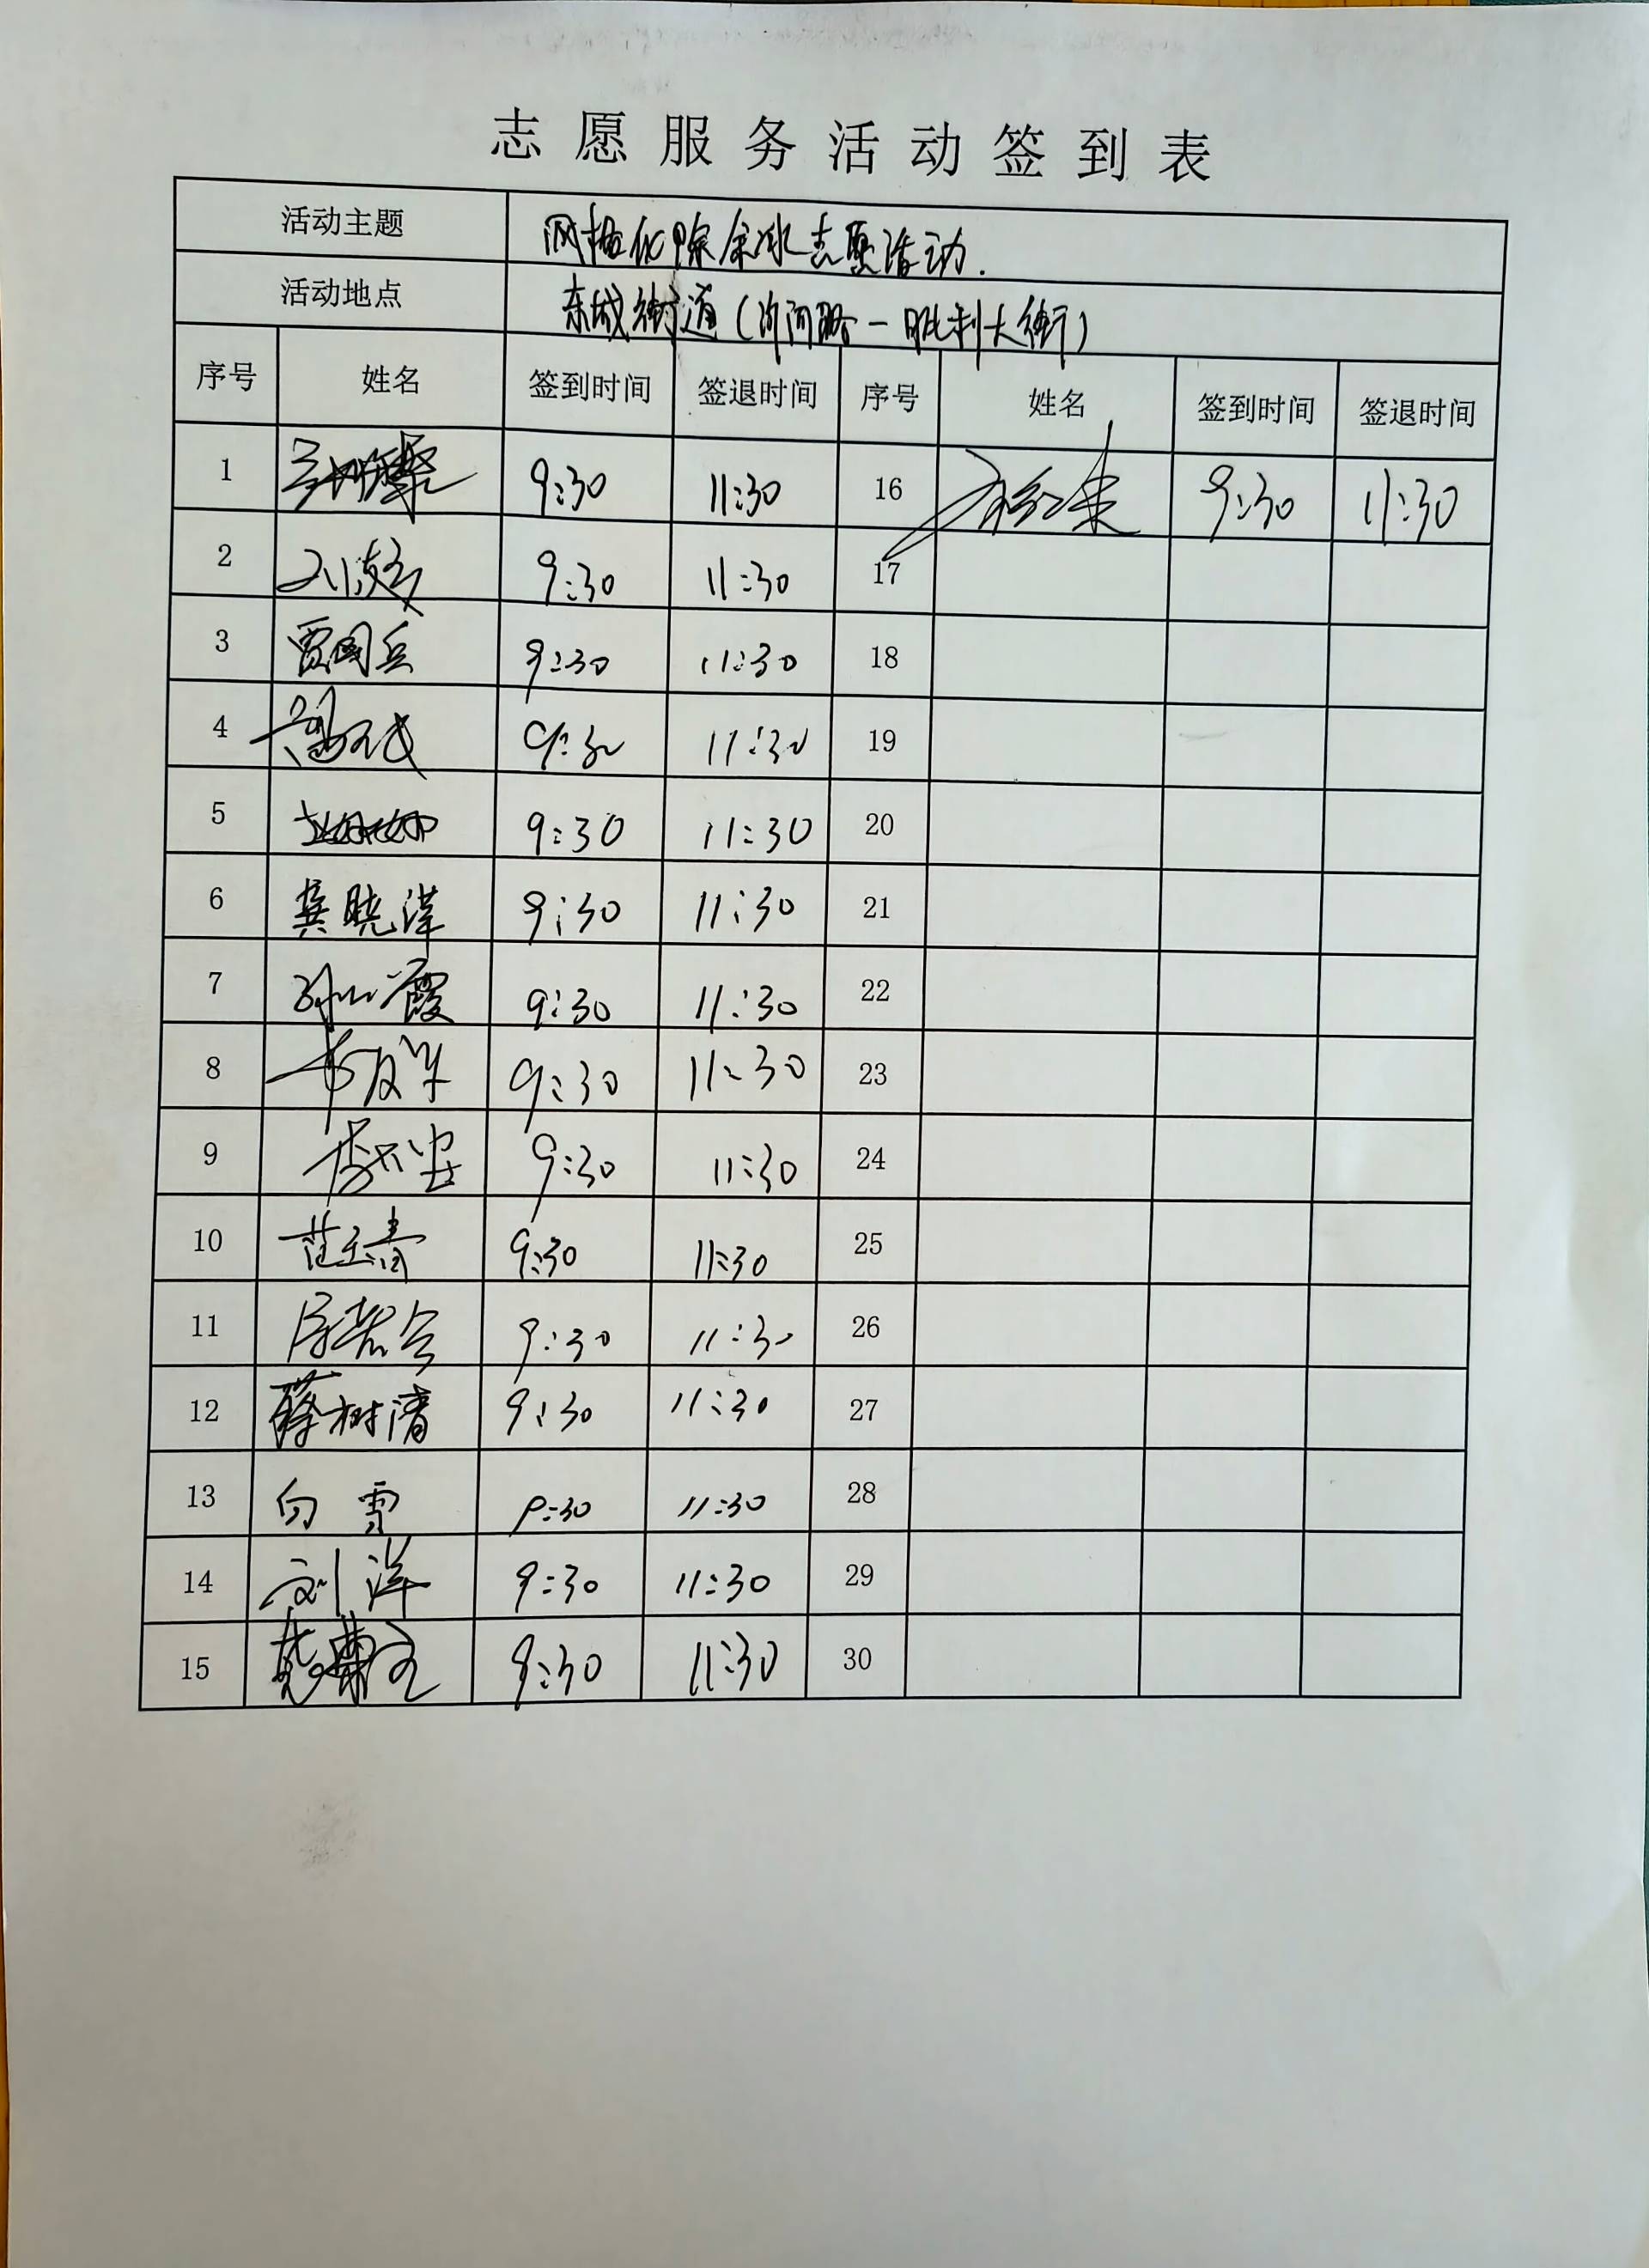 志愿服务活动签到表
活动主题 网格化除余冰志愿活动.
活动地点 东城街道(沂河路一胜利大街)
序号 姓名 签到时间 签退时间 序号 姓名 签到时间 签退时间
1 9:30 11:30 16 9:30 11:30
2 9:30 11:30 17
3 贾国兵 9:30 11:30 18
4 9:30 11:30 19
5 9:30 11:30 20
6 龚晓洋 9:30 11:30 21
7 9:30 11:30 22
8 9:30 11:30 23
9 9:30 11:30 24
10 范玉青 9:30 11:30 25
11 9:30 11:30 26
12 蔡树清 9:30 11:30 27
13 白雪 9:30 11:30 28
14 刘洋 9:30 11:30 29
15 9:30 11:30 30